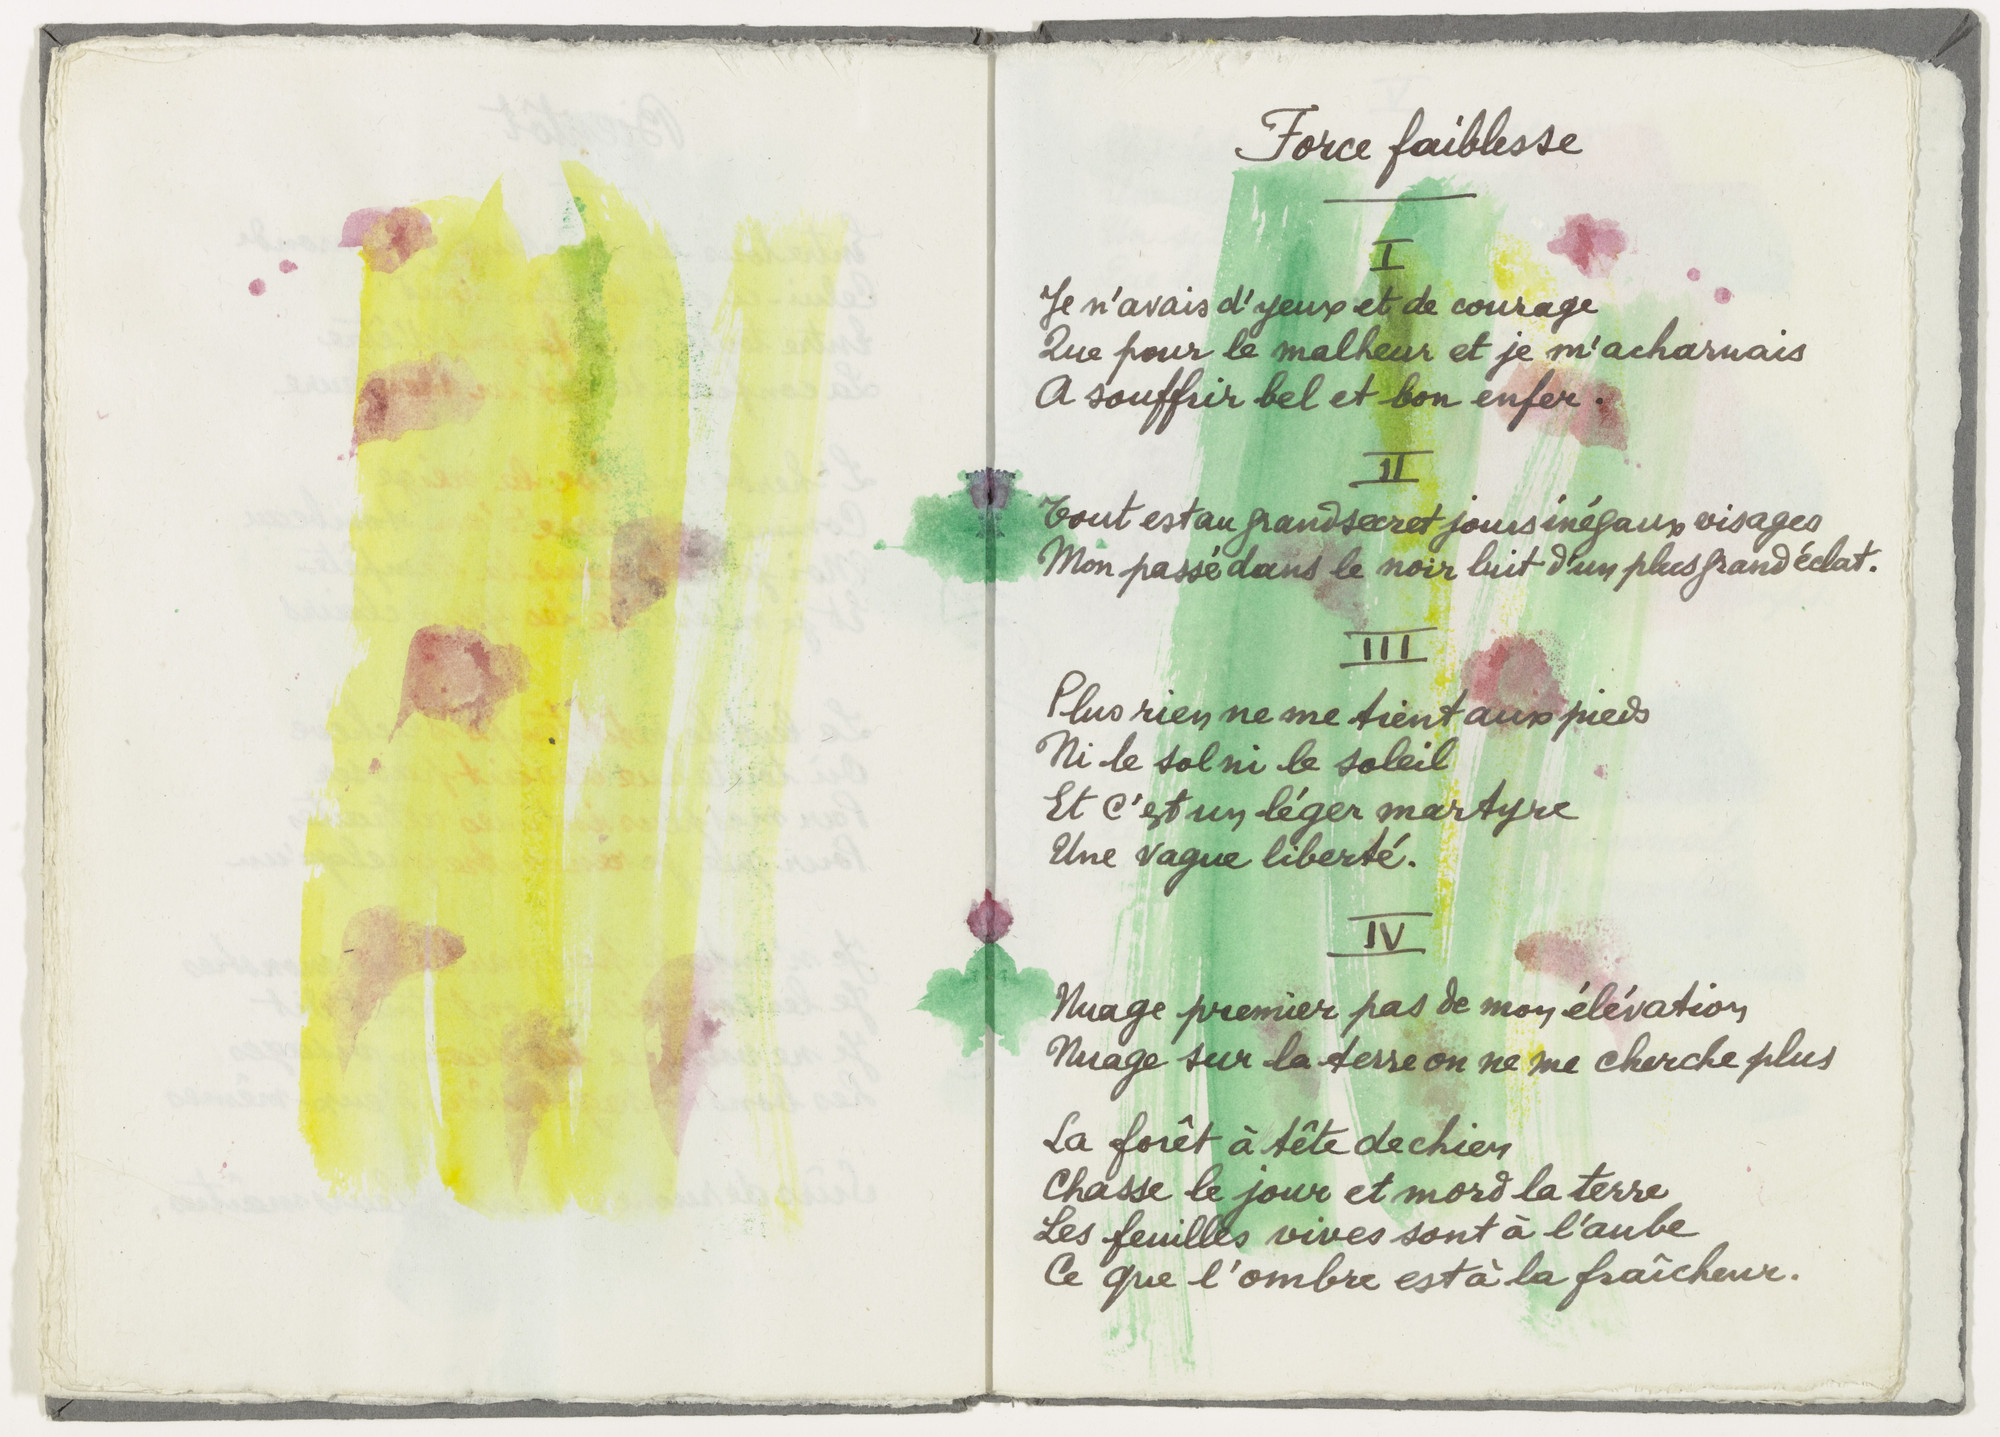 Force faiblesse
I
Je n'avais d'yeux et de courage
Que pour le malheur et je m'acharnais
A souffrir bel et bon enfer.
II
Tout est au grand secret jours inégaux visages
Mon passé dans le noir luit d'un plus grand éclat.
III
Plus rien ne me tient aux pieds
Ni le sol ni le soleil
Et c'est un léger martyre
Une vague liberté.
IV
Nuage premier pas de mon élévation
Nuage sur la terre on ne me cherche plus
La forêt à tête de chien
Chasse le jour et mord la terre
Les feuilles vives sont à l'aube
Ce que l'ombre est à la fraîcheur.